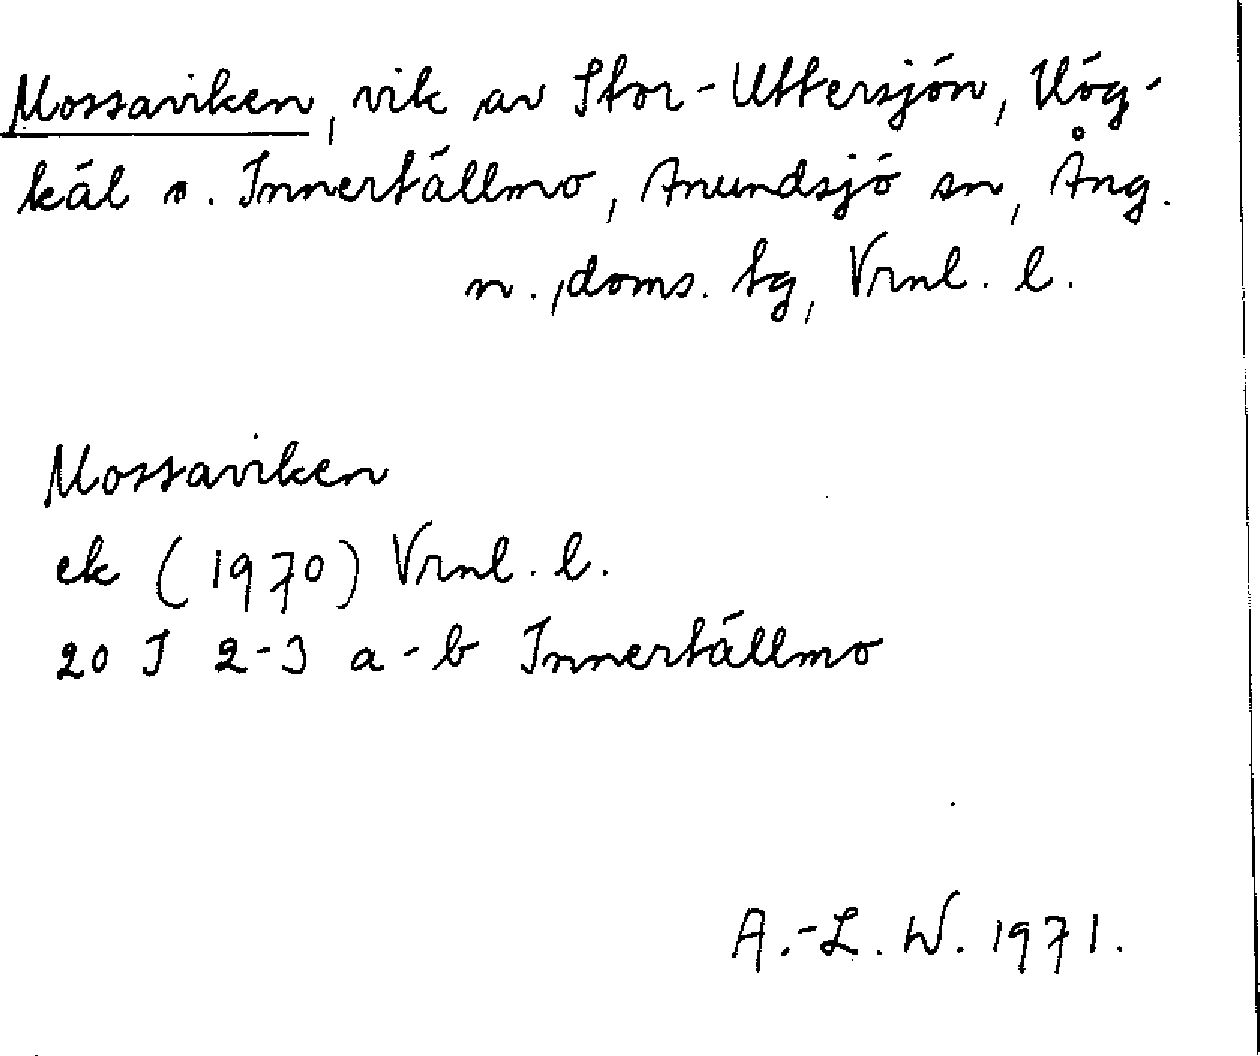 Mossaviken, vik av Stor-Uttersjön, Hög-
käl s. Innertällmo, Anundsjö sn, Ång.
n., doms. tg, Vrnl. l.
Mossaviken
ek (1970) Vrnl. l.
20 I 2-3 a-b Innertällmo
A.-L. W. 1971.